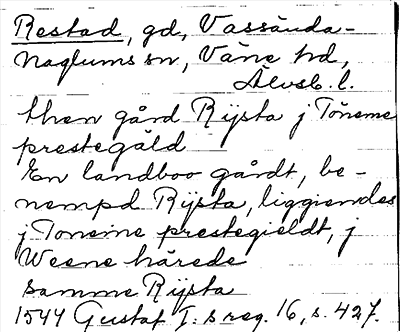 Restad, gd, Vassända-
Naglums sn, Väne hd,
Älvsb. l.
then gård Rijsta j Töneme
prestegäld
En landboo gårdt, be-
nempd Rijsta, liggiendes
j Toneme prestegieldt, j
Weene härede
samme Rijsta
1544 Gustaf I:s reg. 16, s. 427.